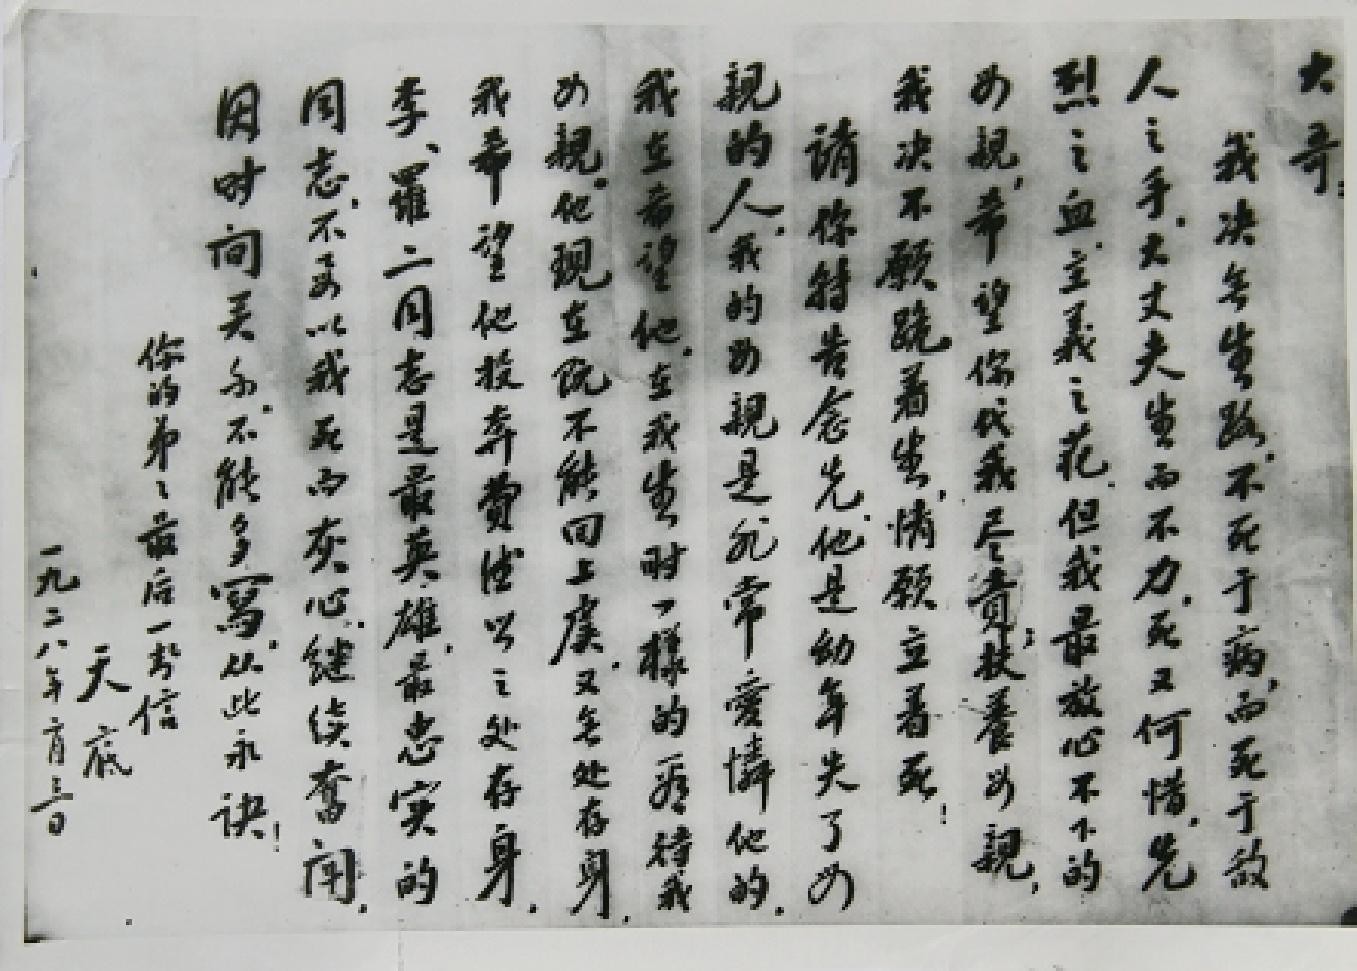 大哥：
我决无生路，不死于病，而死于敌
人之手，大丈夫生而不力，死又何惜，先
烈之血，主义之花，但我最放心不下的
母親，希望你代我尽責，扶養母親，
我决不願跪着生，情願立着死！
請你特告念先，他是幼年失了母
親的人，我的母親是非常愛憐他的。
我在希望他，在我生时一樣的看待我
母親。他現在既不能回上虞，又无处存身，
我希望他投奔費德以之处存身。
李、羅二同志是最英雄，最忠实的
同志，不要以我死而灰心，继续奮闘。
因时间关系，不能多寫，从此永訣！
你的弟弟最后一封信
天底
一九二八年六月三日